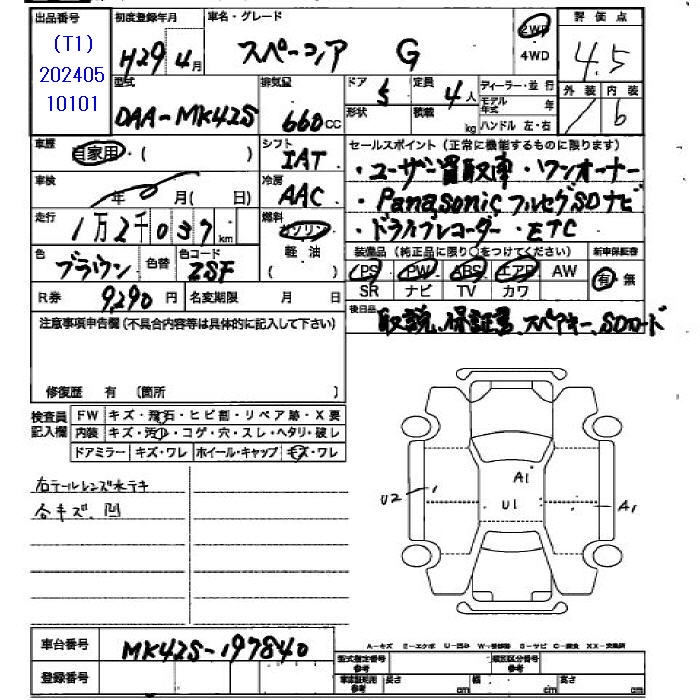 出品番号 初度登録年月 車名・グレード 評価点
(T1)
202405
10101
H29年4月 スペーシア G 2WD 4WD 4.5
型式 排気量 ドア 定員 ディーラー・並行 外装 内装
DAA-MK42S 660cc 5 4人 モデル年式 年 b
形状 積載 kg ハンドル 左・右
車歴 自家用・( ) シフト IAT セールスポイント(正常に機能するものに限ります。)
・ユーザー買取車・ワンオーナー
車検 年 月( 日) 冷房 AAC ・Panasonicフルセグ SDナビ
走行 1万2千037km 燃料 ガソリン 軽油 ( ) ・ドライブレコーダー・ETC
色 ブラウン 色替 色コード ZSF
装備品(純正品に限り○をつけてください) 新車保証書
PS PW ABS エアB AW 有・無
SR ナビ TV カワ
R券 9,290円 名変期限 月 日
後日品 取説、保証書、スペアキー、SDカード
注意事項申告欄(不具合内容等は具体的に記入して下さい)
修復歴 有 〔箇所 〕
検査員記入欄 FW キズ・飛石・ヒビ割・リペア跡・X要
内装 キズ・汚れ・コゲ・穴・スレ・ヘタリ・破レ
ドアミラー キズ・ワレ ホイール・キャップ キズ・ワレ
右テールレンズ水テキ
各キズ、凹
A1
U2 U1 A1
車台番号 MK42S-197840
A-キズ E-エクボ U-凹み W-修理跡 S-サビ C-腐食 XX-交換済
登録番号
型式指定番号 参考 類別区分番号 参考
長さ cm 幅 cm 高さ cm